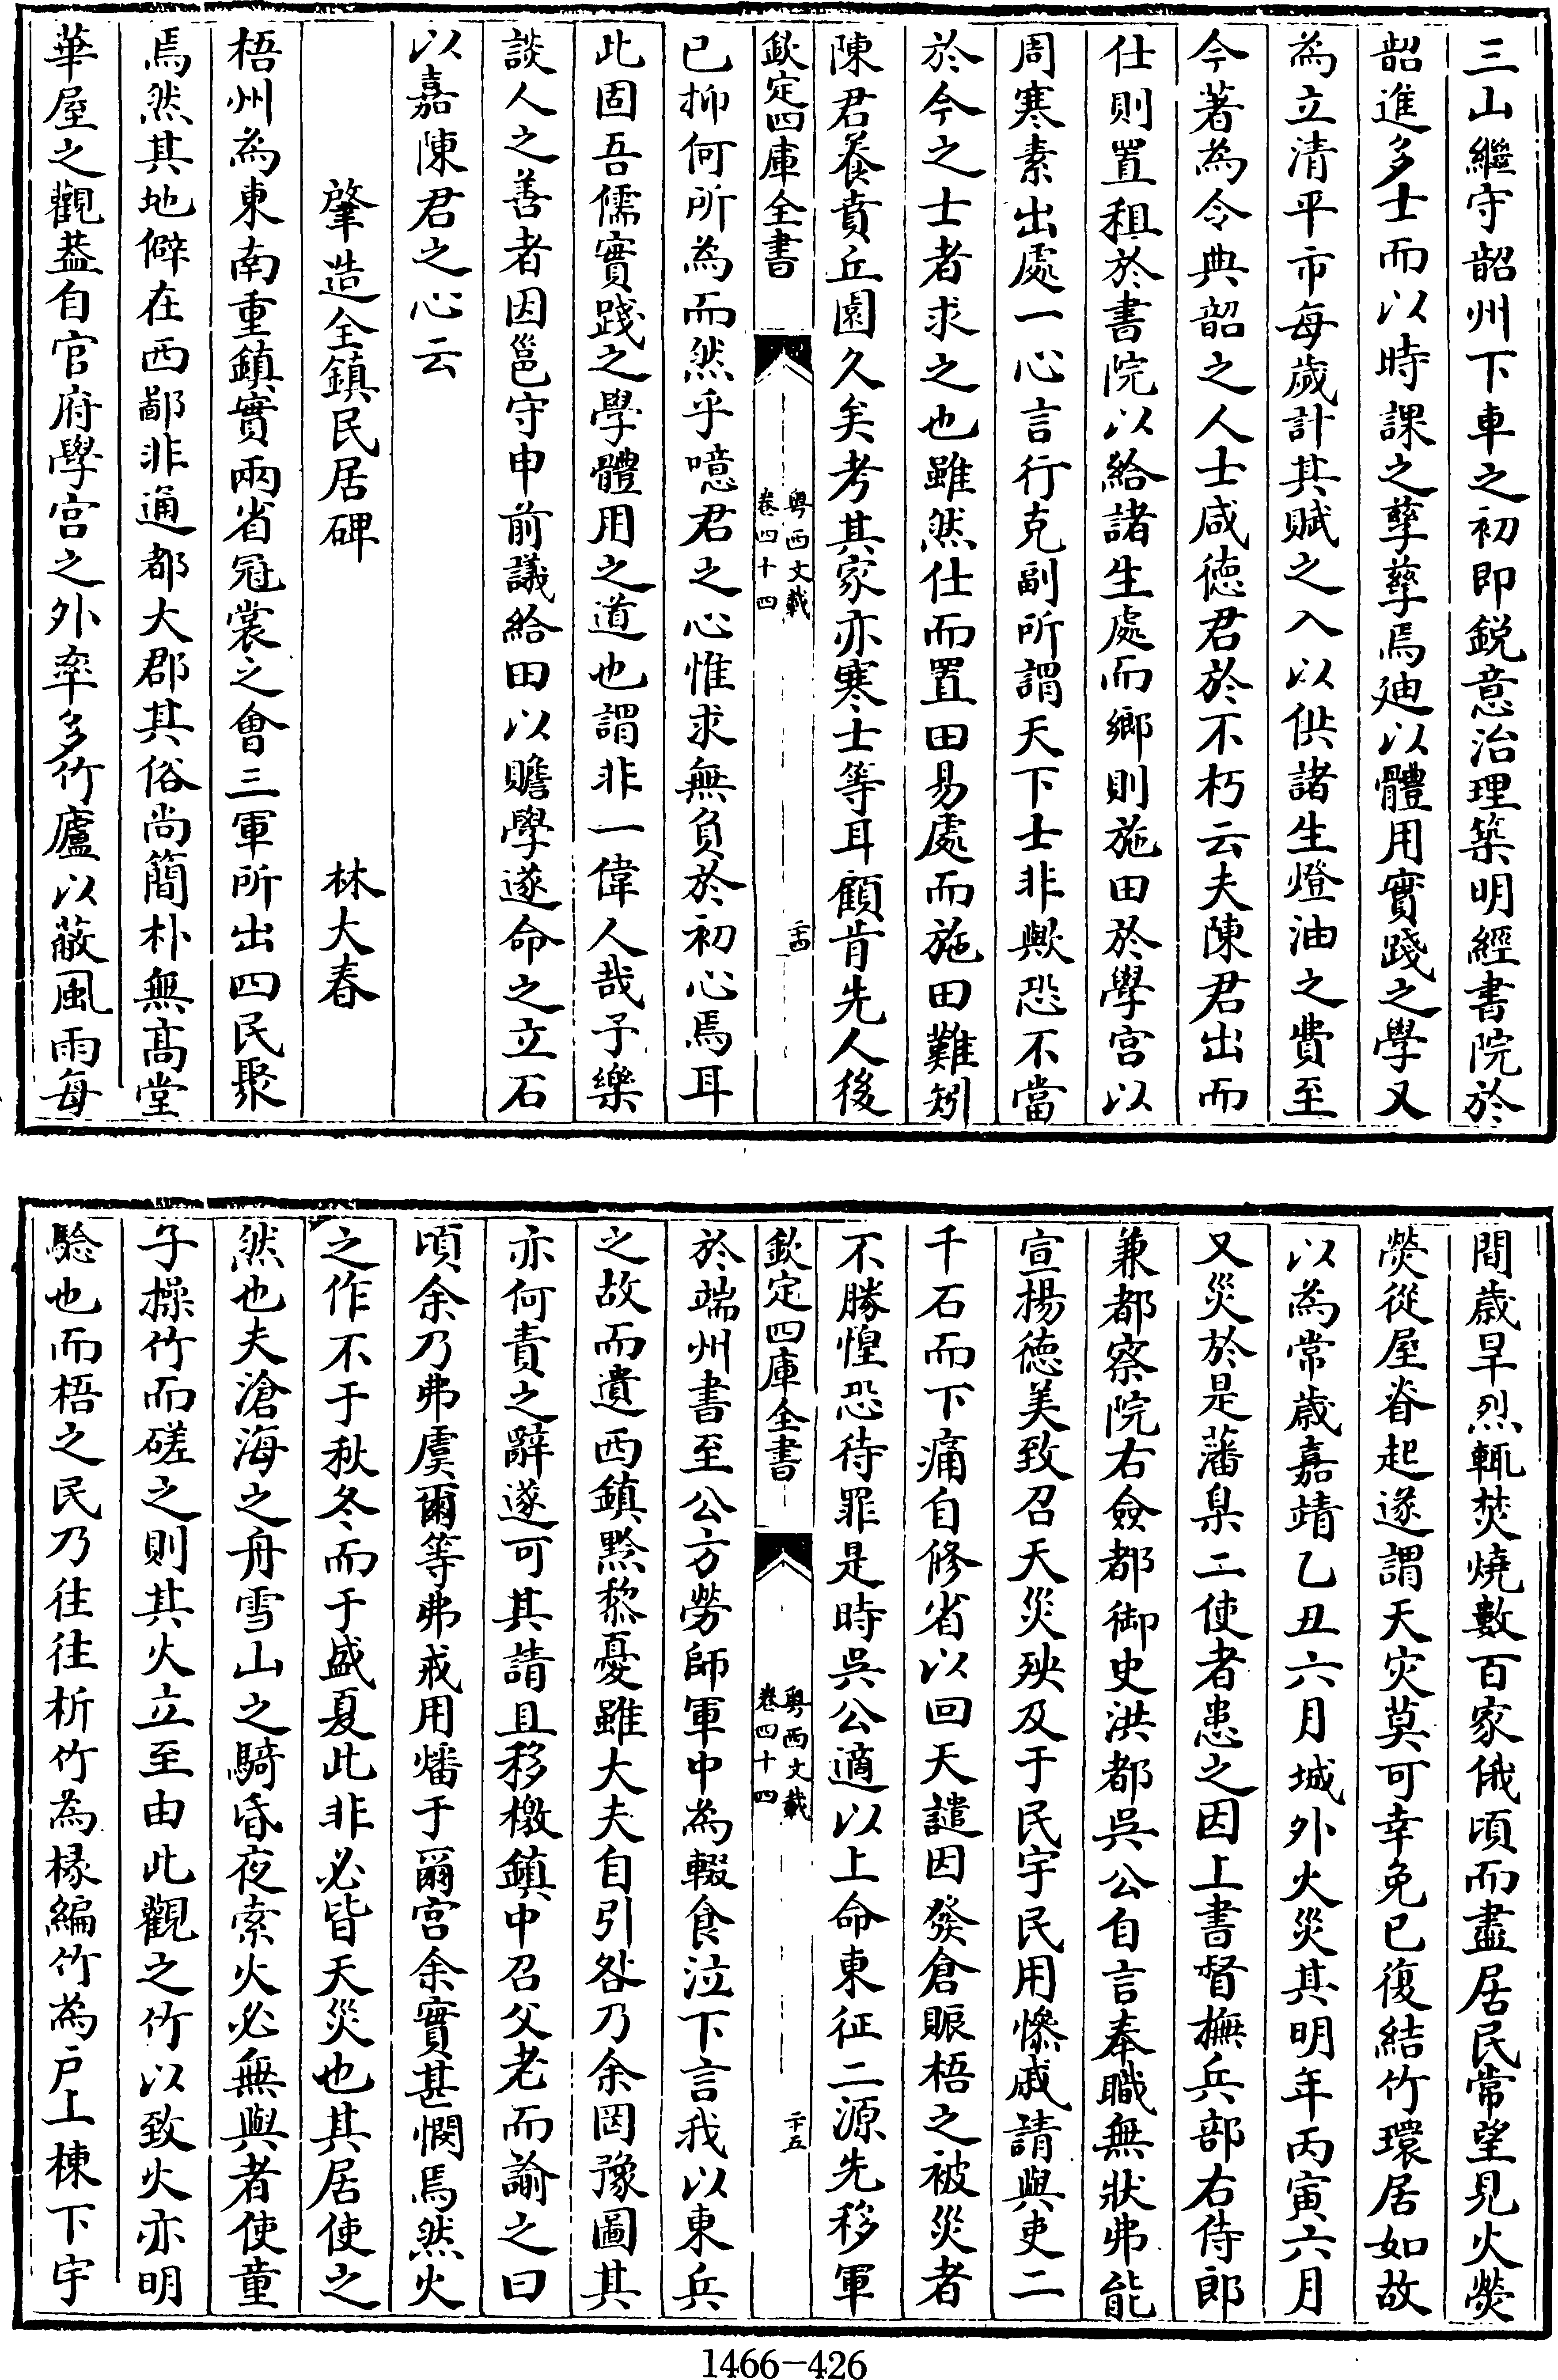 三山繼守韶州下車之初即鋭意治理築明經書院於
韶進多士而以時課之孳孳焉廸以體用實踐之學又
為立清平市每歲計其賦之入以供諸生燈油之費至
今著為令典韶之人士咸徳君於不朽云夫陳君出而
仕則置租於書院以給諸生處而鄉則施田於學宫以
周寒素出處一心言行克副所謂天下士非歟恐不當
於今之士者求之也雖然仕而置田易處而施田難矧
陳君養賁丘園久矣考其家亦寒士等耳顧肯先人後
欽定四庫全書
粤西文載
卷四十四
二十四
已抑何所為而然乎噫君之心惟求無負於初心焉耳
此固吾儒實踐之學體用之道也謂非一偉人哉予樂
談人之善者因邕守申前議給田以贍學遂命之立石
以嘉陳君之心云
肇造全鎮民居碑
林大春
梧州為東南重鎮實兩省冠裳之會三軍所出四民聚
焉然其地僻在西鄙非通都大郡其俗尚簡朴無髙堂
華屋之觀葢自官府學宫之外率多竹廬以蔽風雨每
間歲旱烈輒焚燒數百家俄頃而盡居民常望見火熒
熒從屋脊起遂謂天灾莫可幸免已復結竹環居如故
以為常歲嘉靖乙丑六月城外火災其明年丙寅六月
又災於是藩臬二使者患之因上書督撫兵部右侍郎
兼都察院右僉都御史洪都吳公自言奉職無狀弗能
宣揚徳美致召天災殃及于民宇民用慘戚請與吏二
千石而下痛自修省以回天譴因發倉賑梧之被災者
不勝惶恐待罪是時吳公適以上命東征二源先移軍
欽定四庫全書
粤西文載
卷四十四
二十五
於端州書至公方勞師軍中為輟食泣下言我以東兵
之故而遺西鎮黔黎憂雖大夫自引咎乃余罔豫圖其
亦何責之辭遂可其請且移檄鎮中召父老而諭之曰
頃余乃弗虞爾等弗戒用燔于爾宫余實甚憫焉然火
之作不于秋冬而于盛夏此非必皆天災也其居使之
然也夫滄海之舟雪山之騎昏夜索火必無與者使童
子操竹而磋之則其火立至由此觀之竹以致火亦明
騐也而梧之民乃往往析竹為椽編竹為户上棟下宇
1466-426